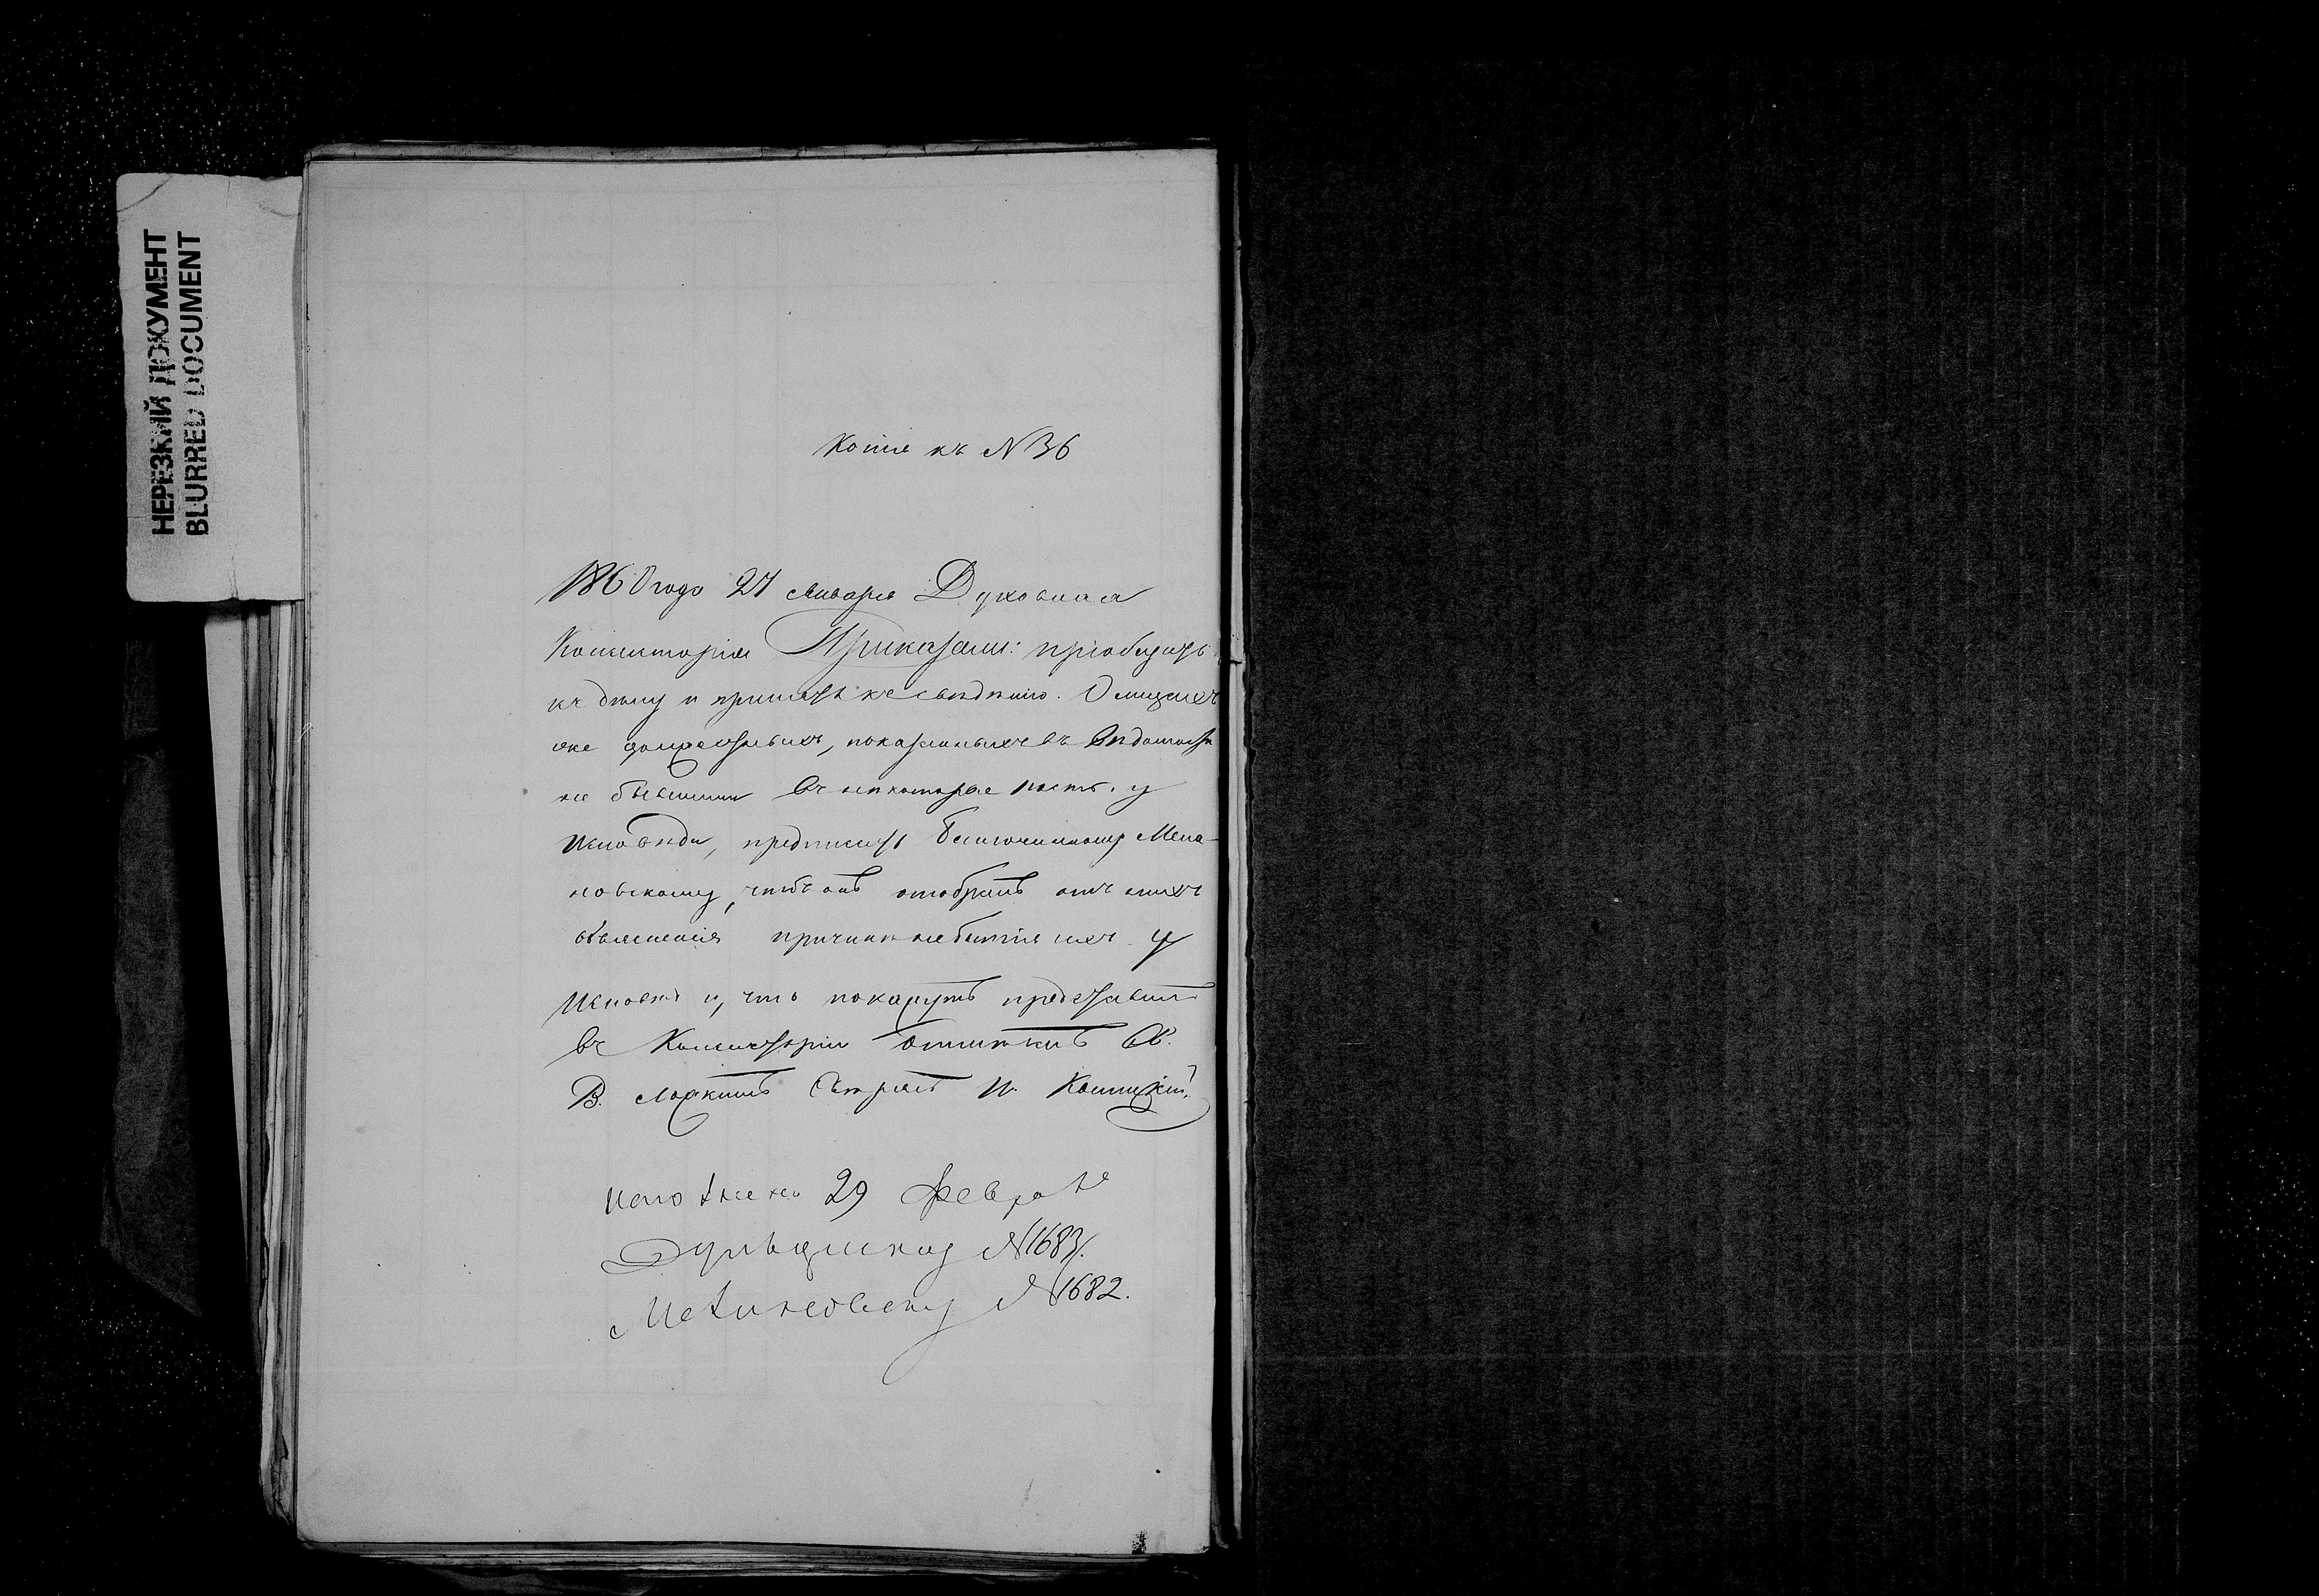 НЕРЕЗКИЙ ДОКУМЕНТ
BLURRED DOCUMENT
Копія къ N 36
1860 года 27 Января Духовная
Консисторія Приказали: пріобщить
къ дѣлу и принять къ свѣдѣнію. О лицахъ
же показанныхъ въ Вѣдомости
не бывшими въ нѣкоторые у
Исповѣди, предписать Благочинному Мели-
новскому, чтобъ онъ отобралъ отъ нихъ
объясненія причинъ небытія ихъ у
Исповѣди и, что покажутъ представилъ
въ Консисторію
В.
Исполнено 29 Февраля
N 1683.
Мелиновскому N 1682.